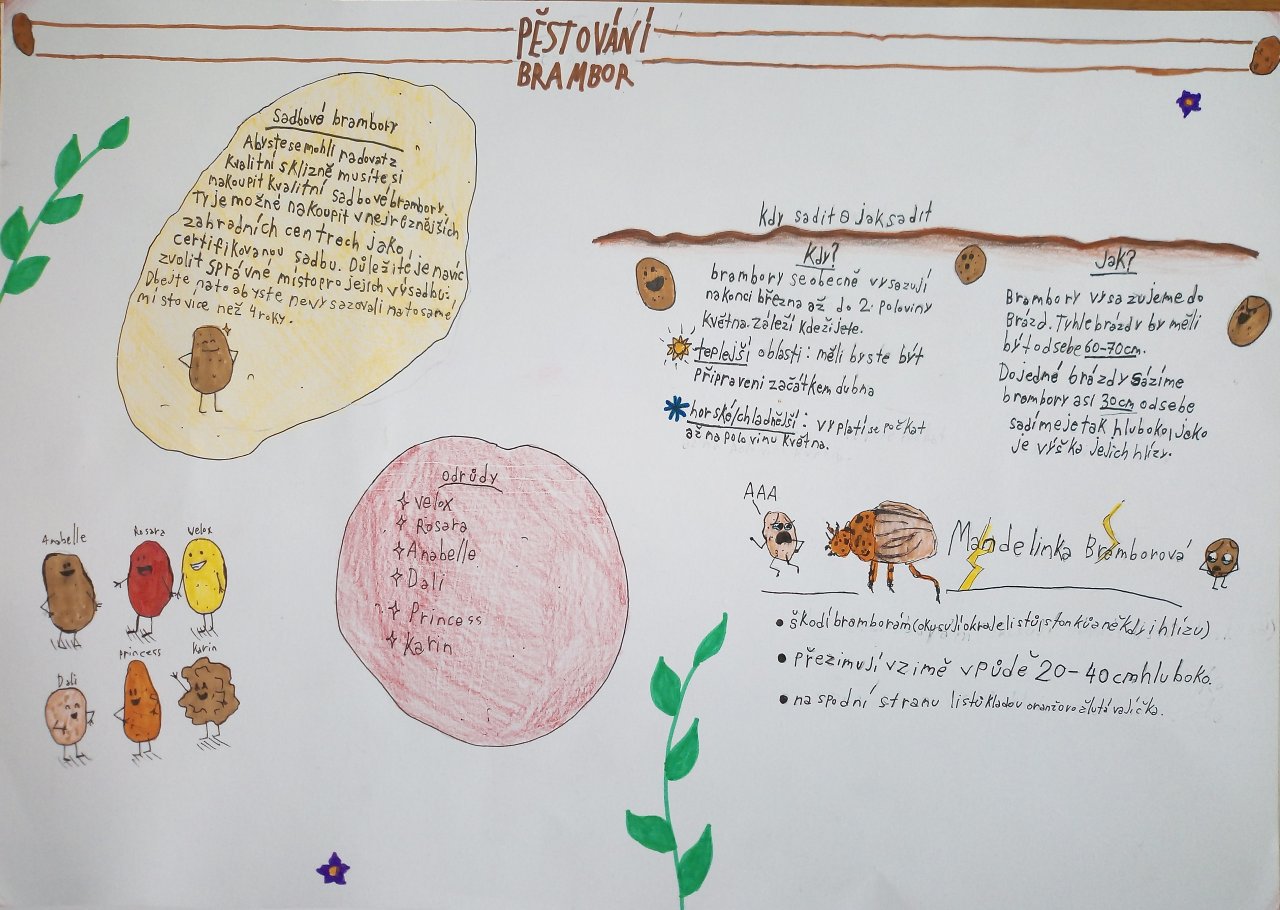 PĚSTOVÁNÍ
BRAMBOR
Sadbové brambory
Abyste se mohli radovat z
kvalitní sklizně musíte si
nakoupit kvalitní sadbové brambory.
Ty je možné nakoupit v nejrůznějších
zahradních centrech jako
certifikovanou sadbu. Důležité je navíc
zvolit správné místo pro jejich výsadbu.
Dbejte na to abyste nevysazovali na to samé
místo více než 4 roky.
Kdy sadit a jak sadit
Kdy?
brambory se obecně vysazují
na konci března až do 2. poloviny
Května. Záleží kde žijete.
teplejší oblasti: měli byste být
připraveni začátkem dubna
horské/chladnější: vyplatí se počkat
až na polovinu Května.
Jak?
Brambory vysazujeme do
Brázd. Tyhle brázdy by měli
být od sebe 60-70cm.
Do jedné brázdy sázíme
brambory asi 30cm od sebe
sadíme je tak hluboko, jako
je výška jejich hlízy.
odrůdy
Velox
Rosara
Anabelle
Dali
Princess
Karin
Anabelle
Rosara
Velox
Dali
Princess
Karin
AAA
Mandelinka Bramborová
• škodí bramborám (okusují okraje listů, stonků a někdy i hlízu)
• přezimují v zimě v půdě 20-40 cm hluboko.
• na spodní stranu listů kladou oranžovo žlutá vajíčka.